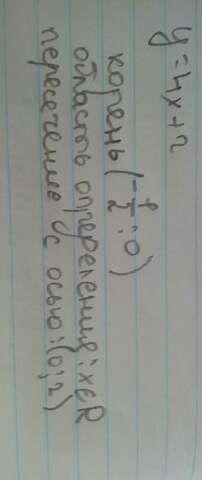 y=4x+2
корень (-1/2; 0)
область определения: x∈R
пересечение с осью: (0; 2)